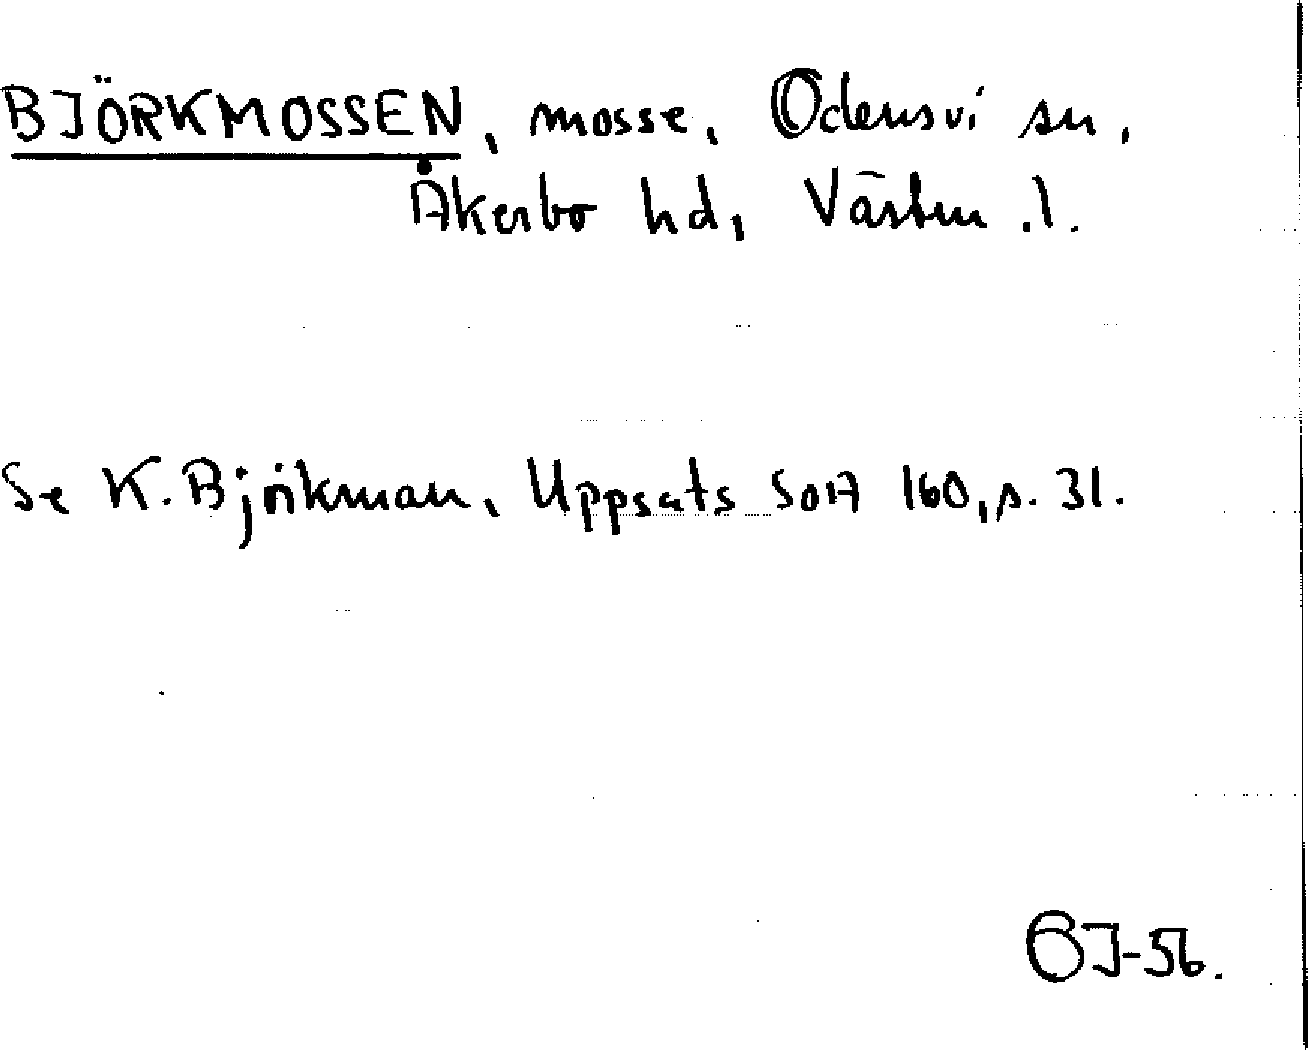 BJÖRKMOSSEN, mosse, Odensvi sn,
Åkerbo hd, Västm.l.
Se K. Björkman, Uppsats SOA 160, s. 31.
BJ-56.